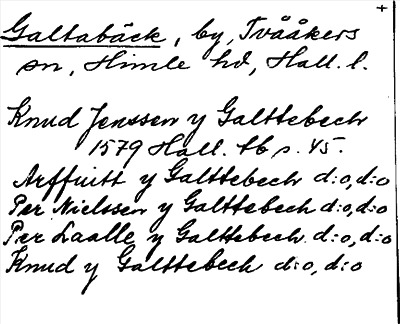 +
Galtabäck, by, Tvååkers
sn, Himle hd, Hall. l.
Knud Jenssen y Galttebech
1579 Hall. tb s. 45.
Arffuitt y Galttebech d:o, d:o
Per Nielssen y Galttebech d:o, d:o
Per Laalle y Galttebech d:o, d:o
Knud y Galttebech d:o, d:o